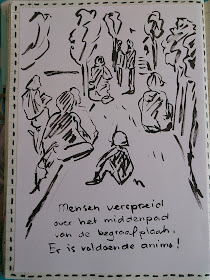 Mensen verspreid
over het middenpad
van de begraafplaats.
Er is voldoende animo!